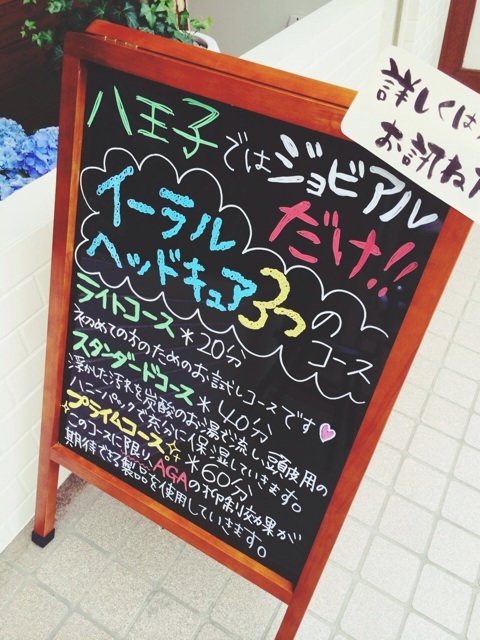 八王子ではジョビアル
だけ!!
イーラル
ヘッドキュア3つの
コース
ライトコース *20分
初めての方のためのお試しコースです
スタンダードコース *40分
浮かした汚れを炭酸のお湯で流し、頭皮用の
ハニーパックで充分に保湿していきます。
プライムコース *60分
このコースに限り、AGAの抑制効果が
期待できる製品を使用していきます。
詳しくは
お訊ね